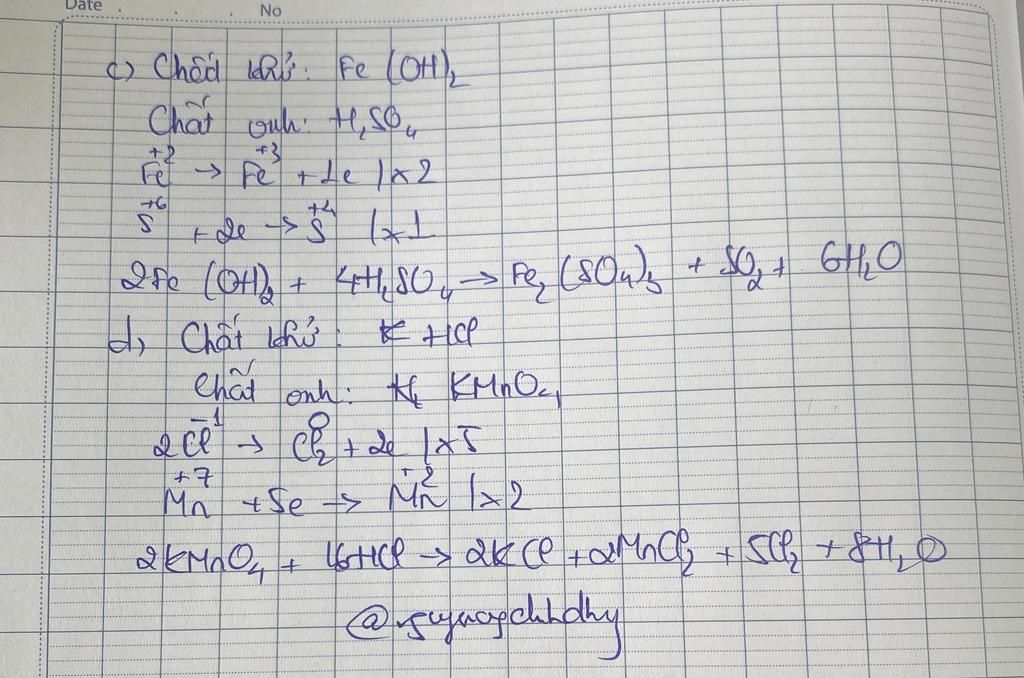 Date . . . No
c) Chất khử: Fe(OH)₂
Chất oxh: H₂SO₄
Fe⁺² → Fe⁺³ + 1e | x2
S⁺⁶ + 2e → S⁺⁴ | x1
2Fe(OH)₂ + 4H₂SO₄ → Fe₂(SO₄)₃ + SO₂ + 6H₂O
d, Chất khử: HCl
Chất oxh: KMnO₄
2Cl⁻¹ → Cl₂⁰ + 2e | x5
Mn⁺⁷ + 5e → Mn⁺² | x2
2KMnO₄ + 16HCl → 2KCl + 2MnCl₂ + 5Cl₂ + 8H₂O